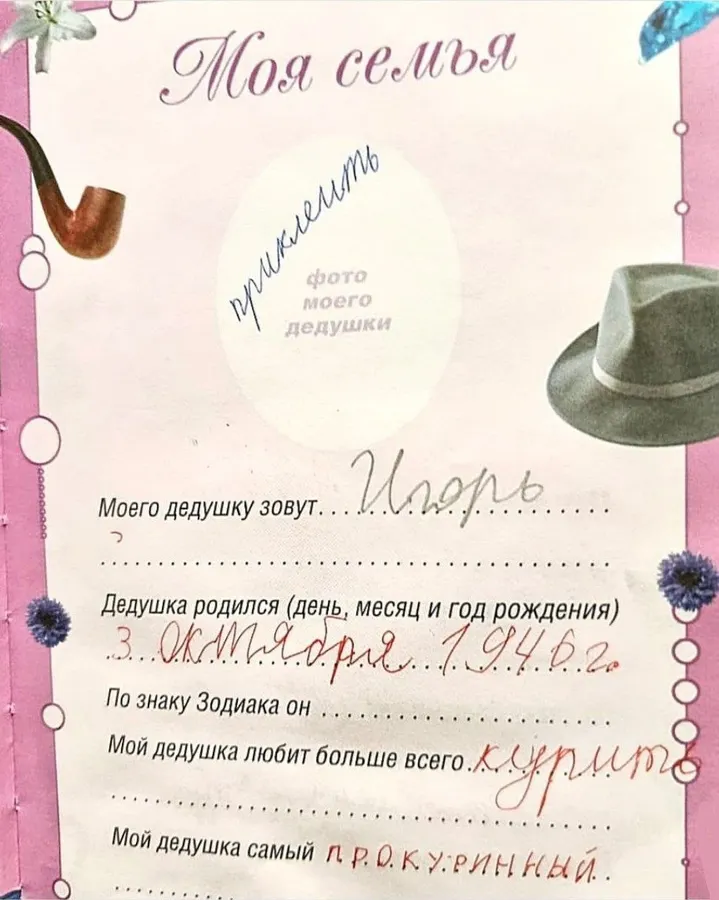 Моя семья
приклеить
фото
моего
дедушки
Моего дедушку зовут Игорь
Дедушка родился (день, месяц и год рождения)
3 октября 1946 г.
По знаку Зодиака он
Мой дедушка любит больше всего курить
Мой дедушка самый прокуринный